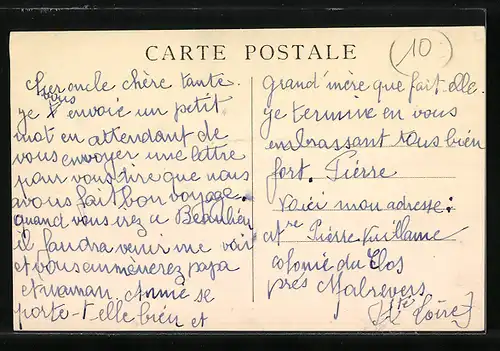 CARTE POSTALE
10
Cher oncle chère tante.
je vous envoie un petit
mot en attendant de
vous envoyer une lettre
pour vous dire que nous
avous fait bon voyage.
quand vous irez a Beaulieu
il faudra venir me voir
et vous amènerez papa
et maman. se
porte-t-elle bien et
grand'mère que fait-elle.
je termine en vous
embrassant tous bien
fort. Pierre
voici mon adresse:
Pierre Guillame
colonie du Clos
près Malrevers
(Hte Loire)